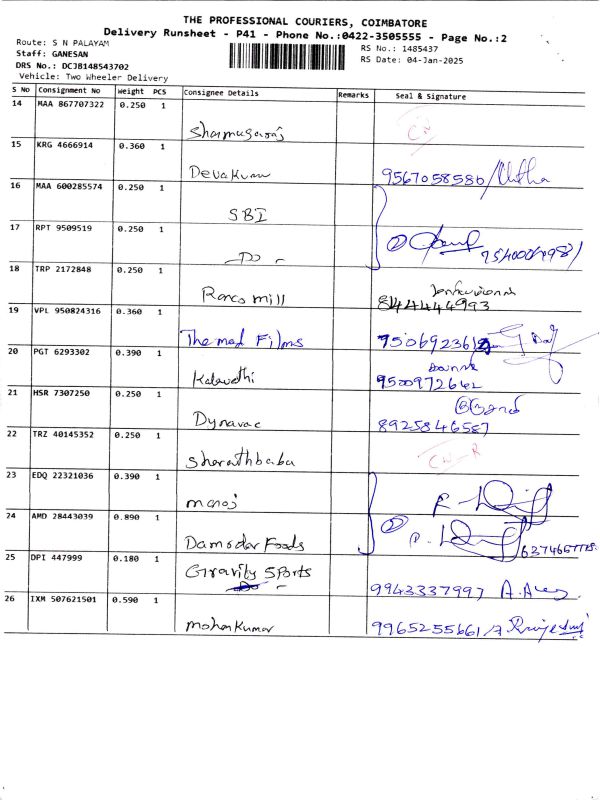 THE PROFESSIONAL COURIERS, COIMBATORE
Delivery Runsheet - P41 - Phone No.:0422-3505555 - Page No.:2
Route: S N PALAYAM
RS No.: 1485437
Staff: GANESAN
RS Date: 04-Jan-2025
DRS No.: DCJB148543702
Vehicle: Two Wheeler Delivery
S No Consignment No Weight PCS Consignee Details Remarks Seal & Signature
14 MAA 867707322 0.250 1
Shanmugaraj
15 KRG 4666914 0.360 1
Devakum 9567058586/
16 MAA 600285574 0.250 1
SBI
17 RPT 9509519 0.250 1
Do
18 TRP 2172848 0.250 1
Ranco mill 8144444993
19 VPL 950824316 0.360 1
Thermad Films
20 PGT 6293302 0.390 1
Kalavathi 9500972642
21 HSR 7307250 0.250 1
Dynavac 8925846587
22 TRZ 40145352 0.250 1
Sharathbaba
23 EDQ 22321036 0.390 1
manoj
24 AMD 28443039 0.890 1
Damodar Foods
25 DPI 447999 0.180 1
Gravity Sports 9943337997
26 IXM 507621501 0.590 1
mohankumar 9965255661/